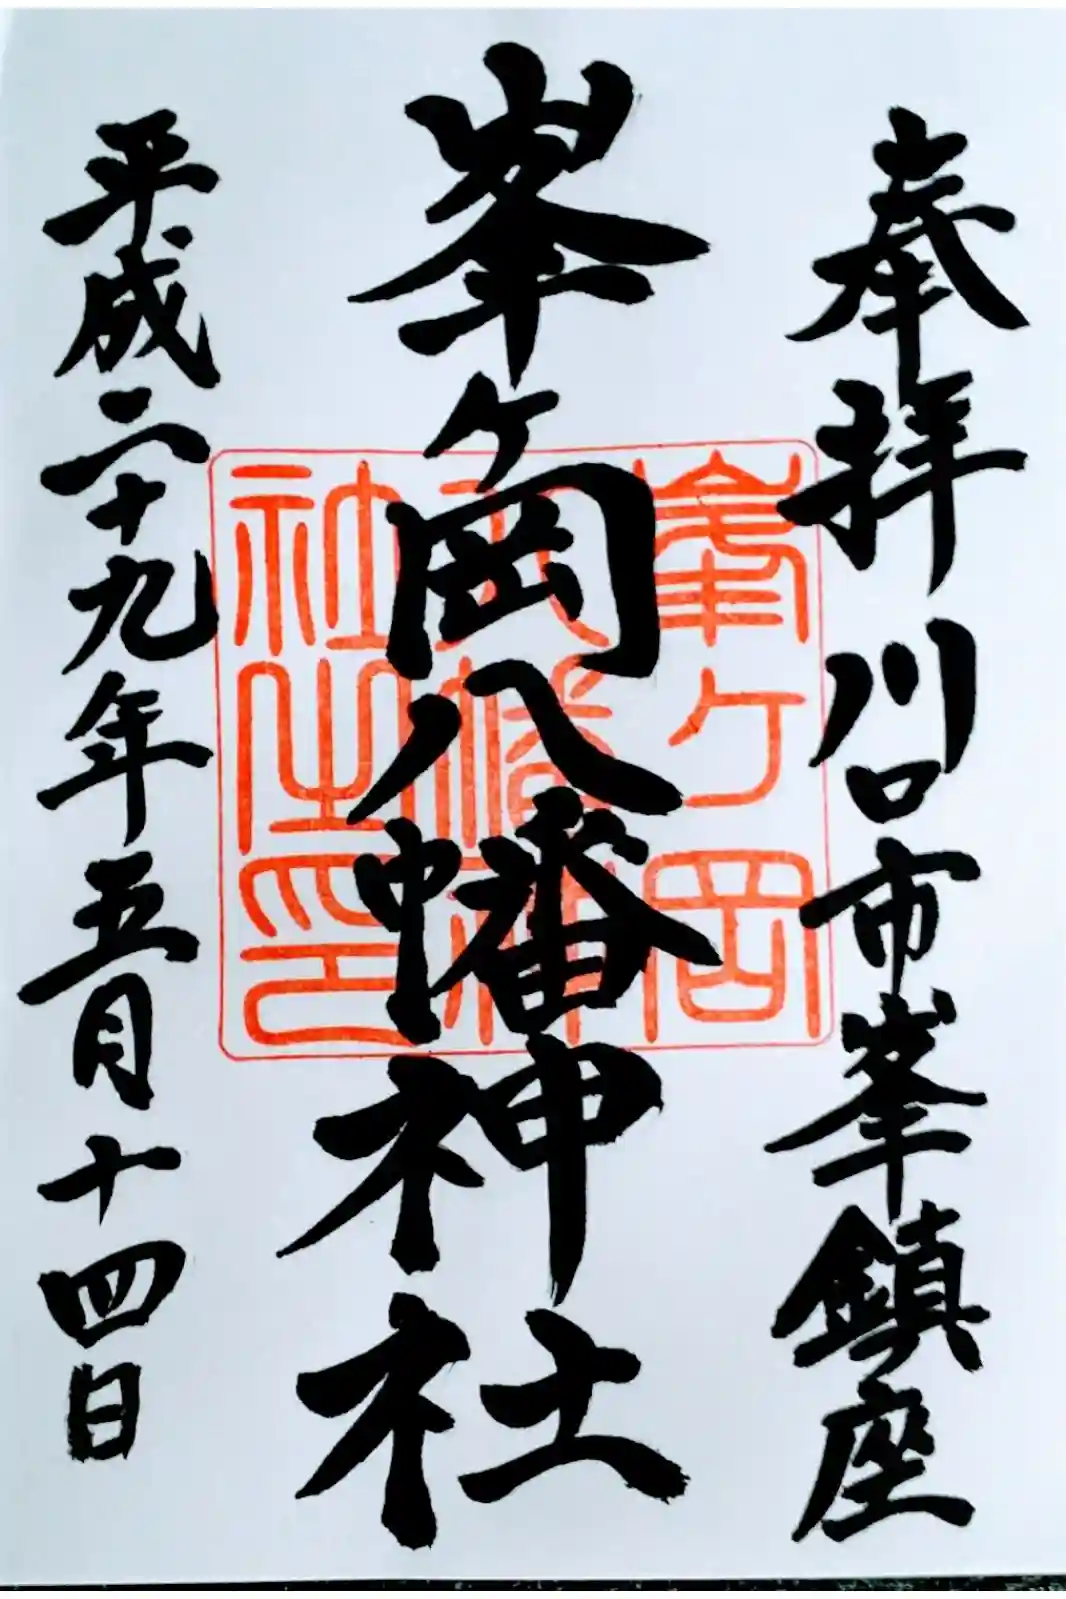 奉拝 川口市峯鎮座
峯ヶ岡八幡神社
平成二十九年五月十四日
峯ヶ岡
八幡神
社之印